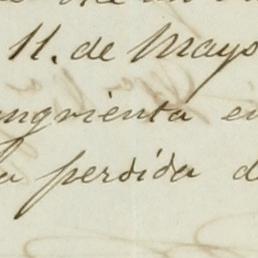 11. de Mayo
angrienta en
a perdida d